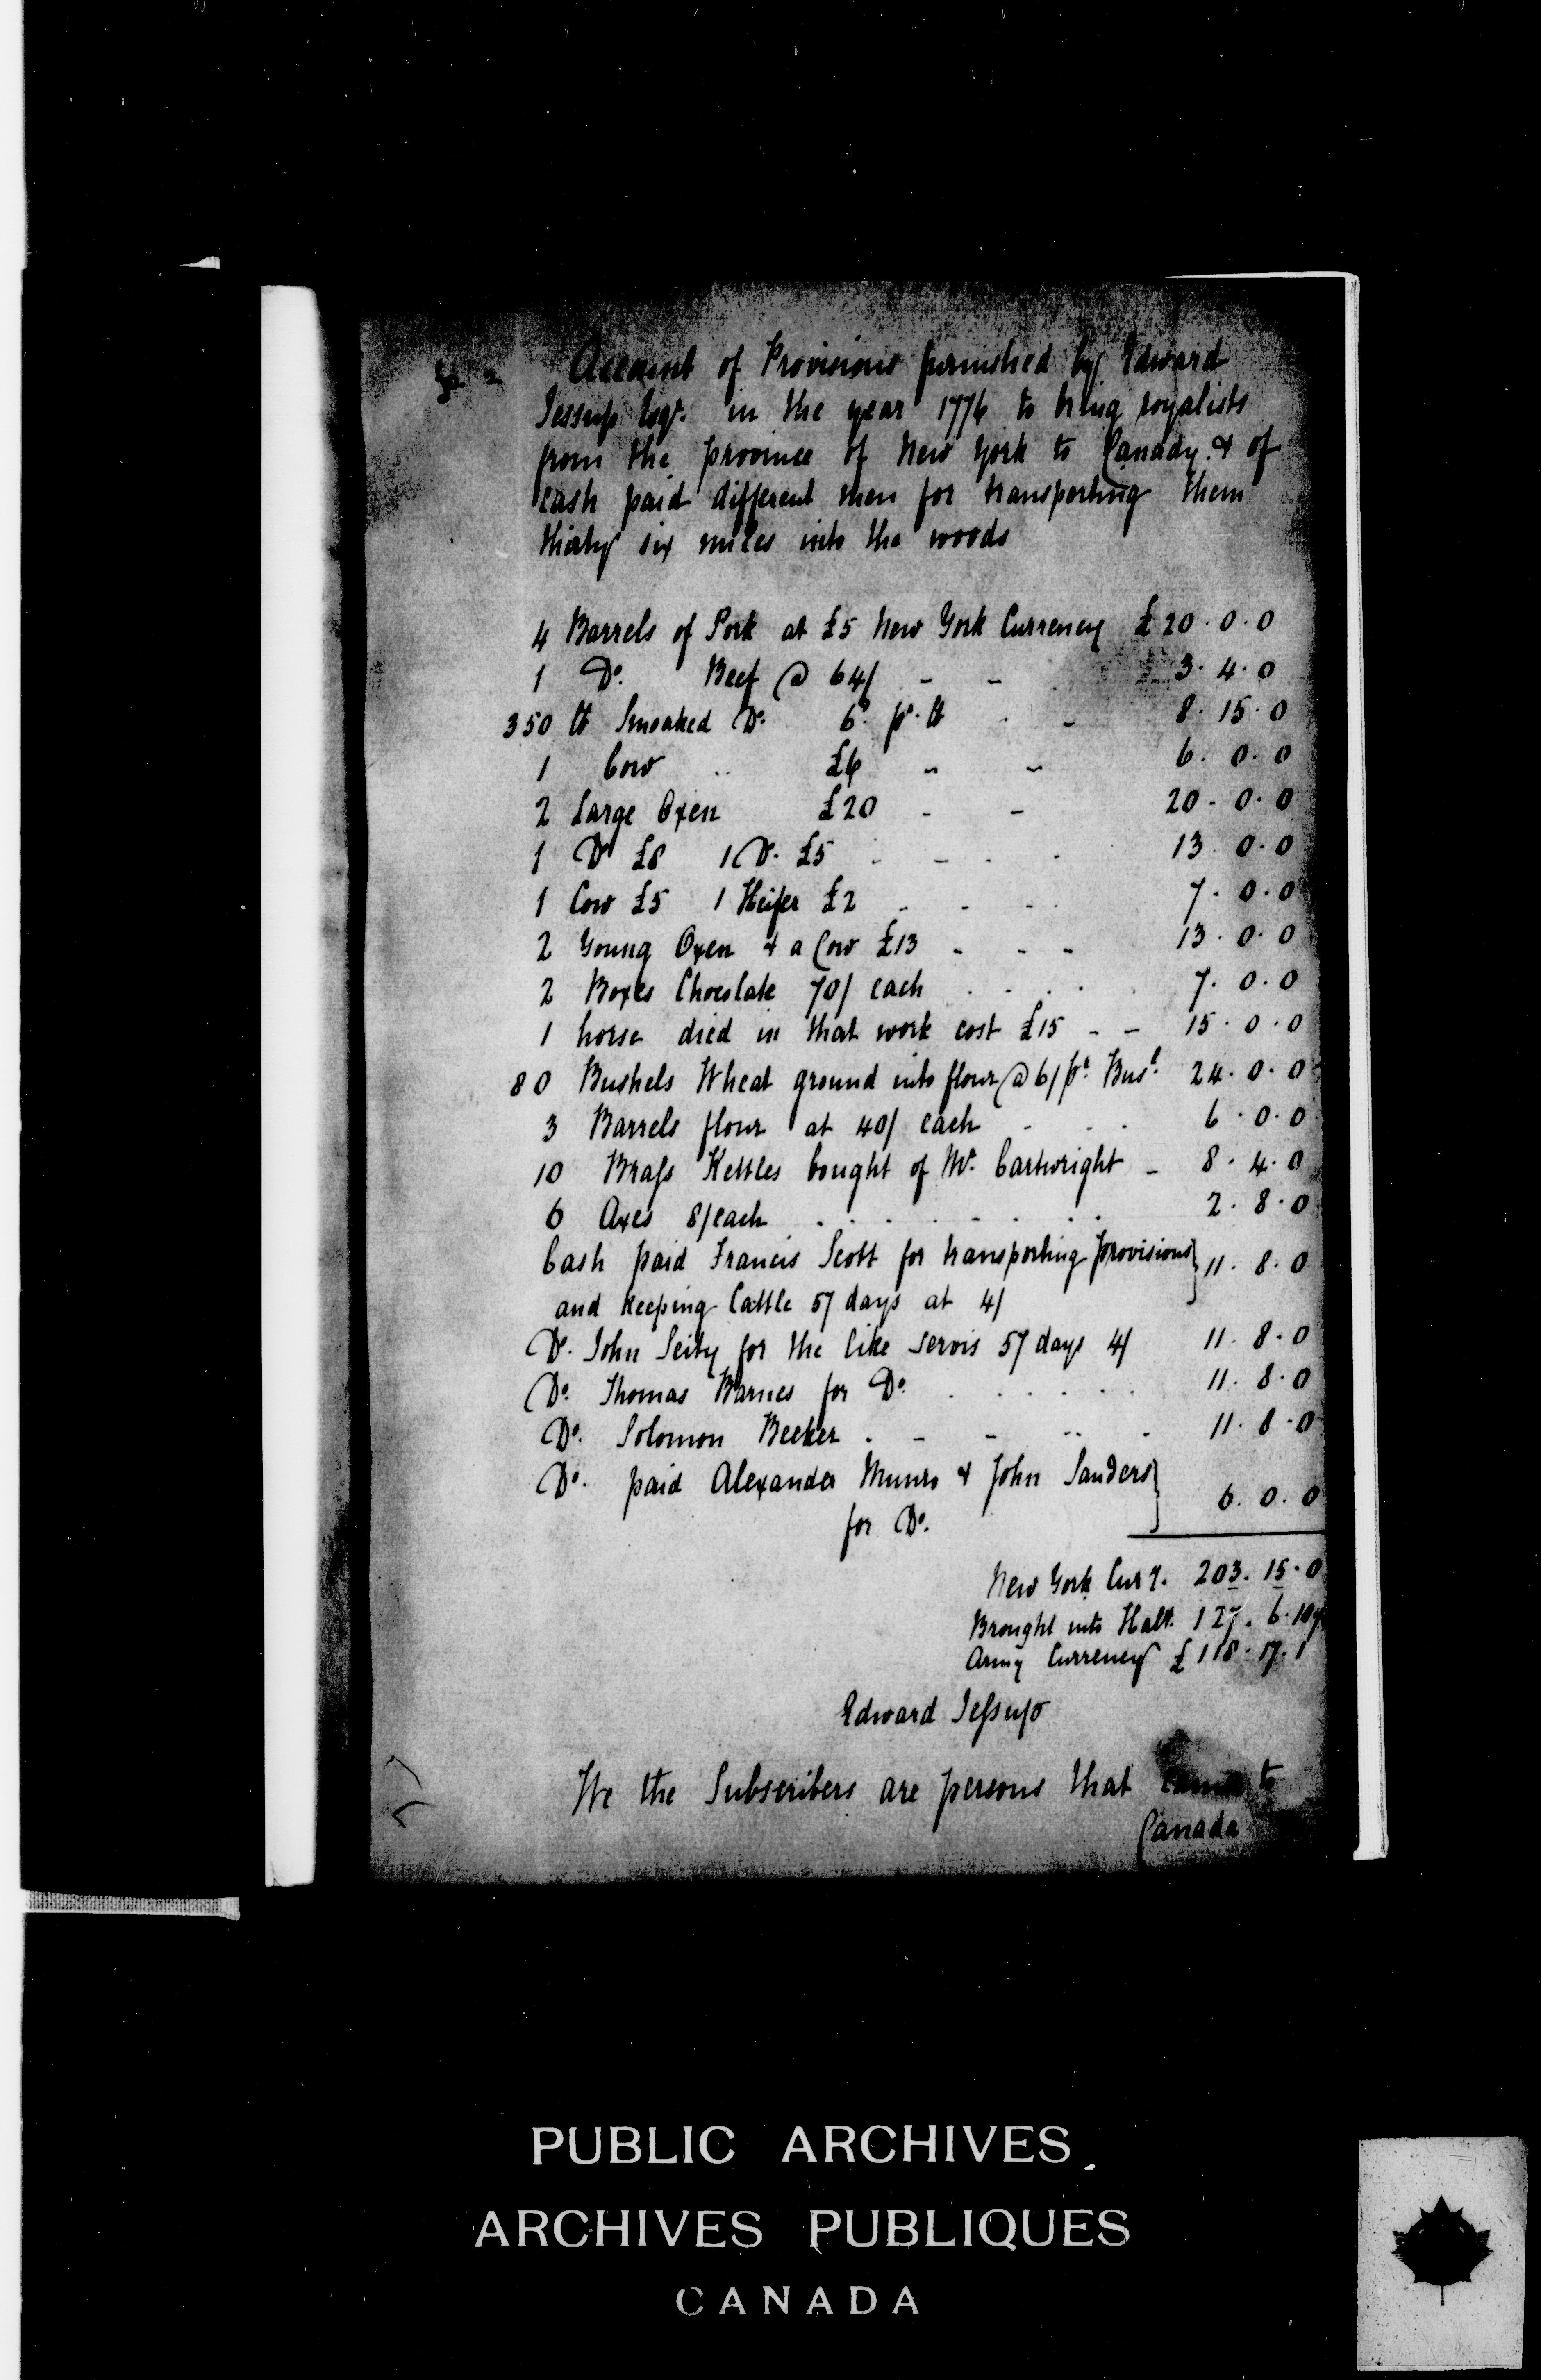 Account of Provisions furnished by Edward
Jessup Esqr. in the year 1776 to bring royalists
from the province of New York to Canady & of
cash paid different men for transporting them
thirty six miles into the woods
4 Barrels of Pork at £5 New York Currency £20.0.0
1 Do. Beef @ 64/ - - 3.4.0
350 lb Smoaked Do. 6d. pr. lb - 8.15.0
1 Cow .. £6 - - 6.0.0
2 Large Oxen £20 - - 20.0.0
1 Do £8 1 Do. £5 . - . . 13.0.0
1 Cow £5 1 Heifer £2 - - - 7.0.0
2 Young Oxen & a Cow £13 - - - 13.0.0
2 Boxes Chocolate 70/ each . . . . 7.0.0
1 horse died in that work cost £15 - - 15.0.0
80 Bushels Wheat ground into flour @ 6/ pr. Busl. 24.0.0
3 Barrels flour at 40/ each - . . 6.0.0
10 Brass Kettles bought of Mr. Cartwright - 8.4.0
6 Axes 8/ each . . . . . . . . 2.8.0
Cash paid Francis Scott for transporting provisions } 11.8.0
and keeping Cattle 57 days at 4/
Do. John Seity for the like servis 57 days 4/ 11.8.0
Do. Thomas Barnes for Do. . . . . . . 11.8.0
Do. Solomon Beeker . - - .. . 11.8.0
Do. paid Alexander Munro & John Sanders } 6.0.0
for Do.
New York Cury. 203.15.0
Brought into Halx. 127.6.10½
Army Currency £118.17.1
Edward Jessup
We the Subscribers are persons that came to
Canada
PUBLIC ARCHIVES
ARCHIVES PUBLIQUES
CANADA